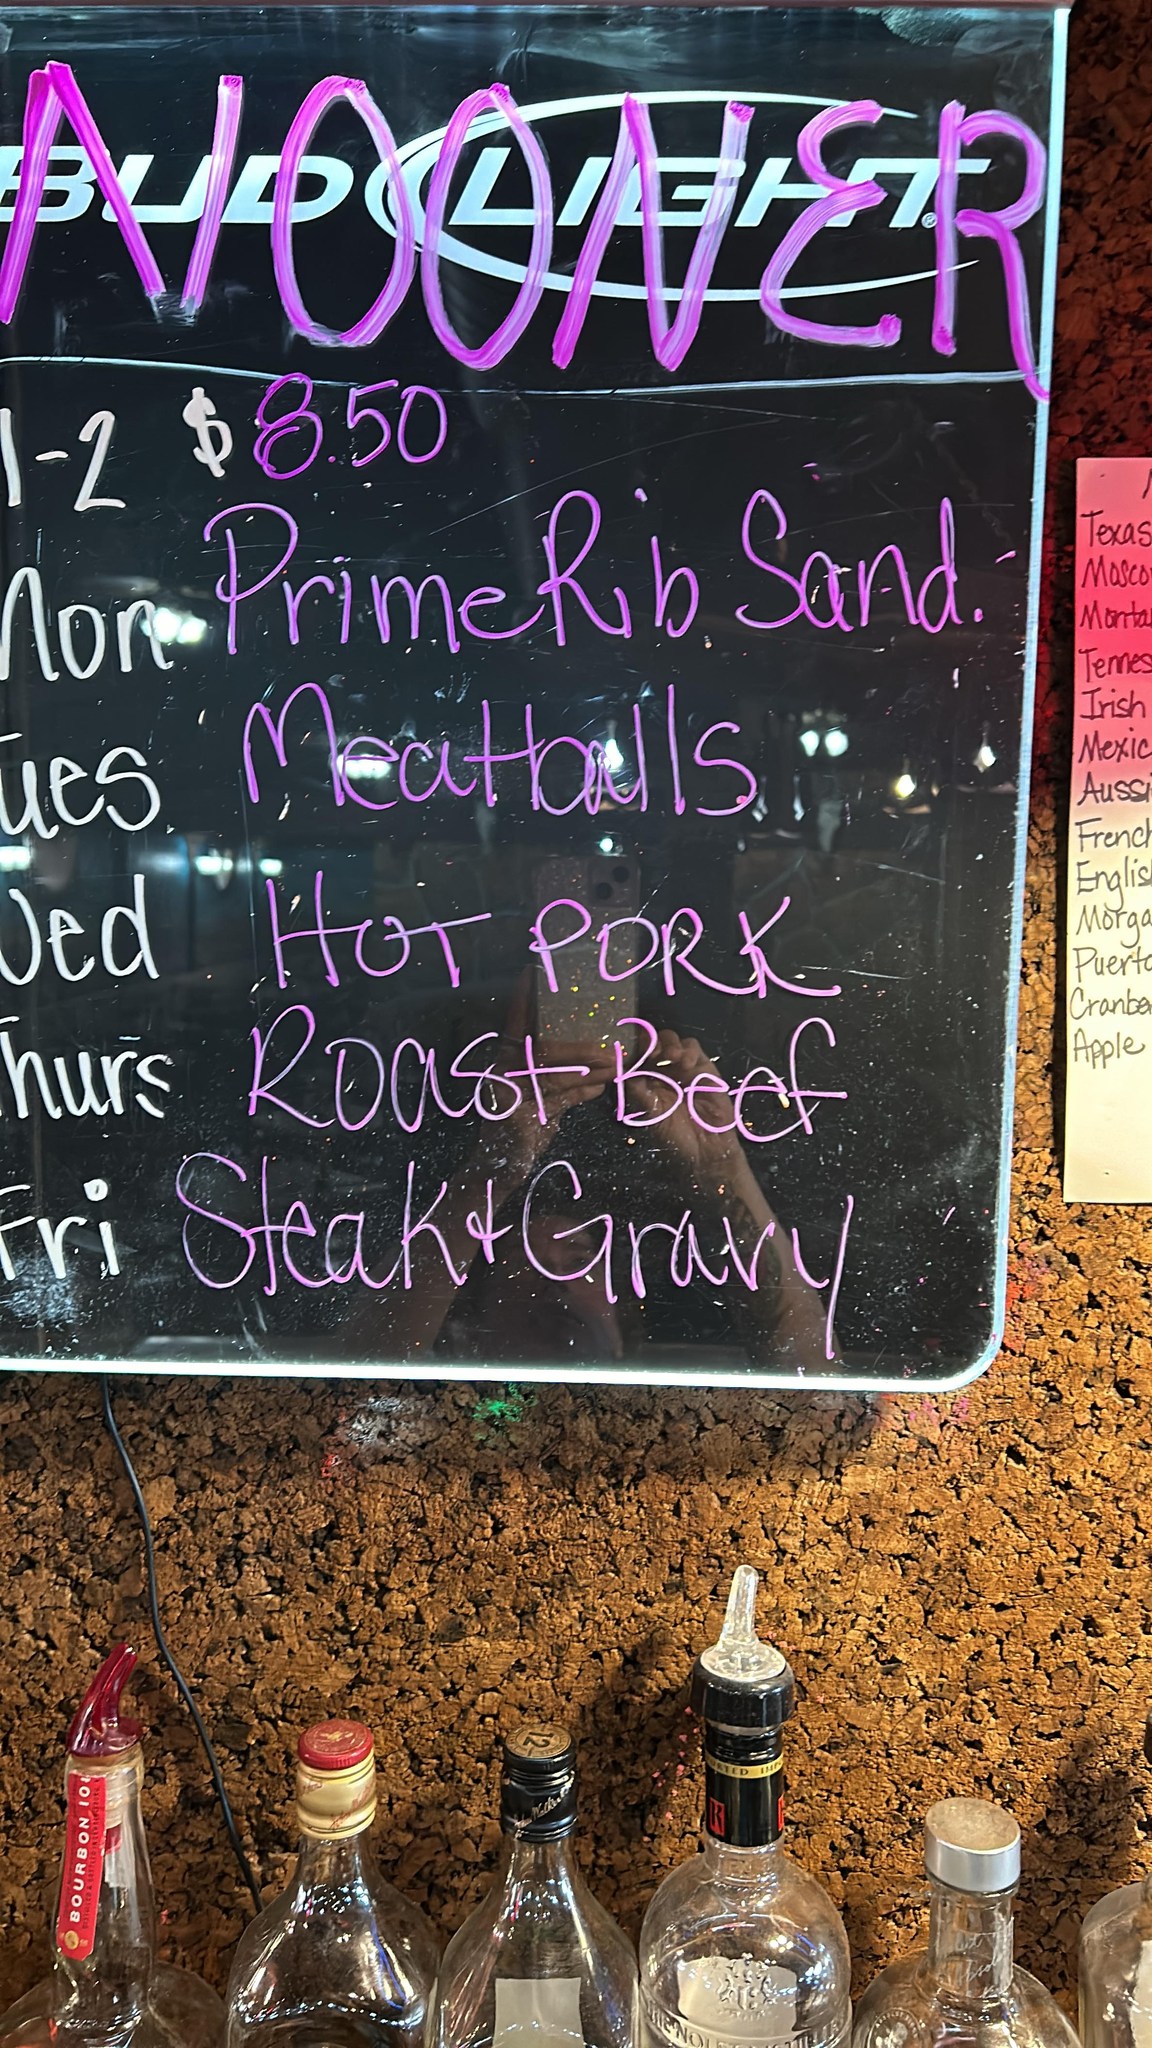 NOONER
BUD LIGHT
1-2 $8.50
Mon Prime Rib Sand.
Tues Meatballs
Wed HOT PORK
Thurs Roast Beef
Fri Steak & Gravy
Texas
Mosco
Monta
Tennes
Irish
Mexic
Aussi
French
English
Morga
Puerto
Cranbe
Apple
BOURBON
12